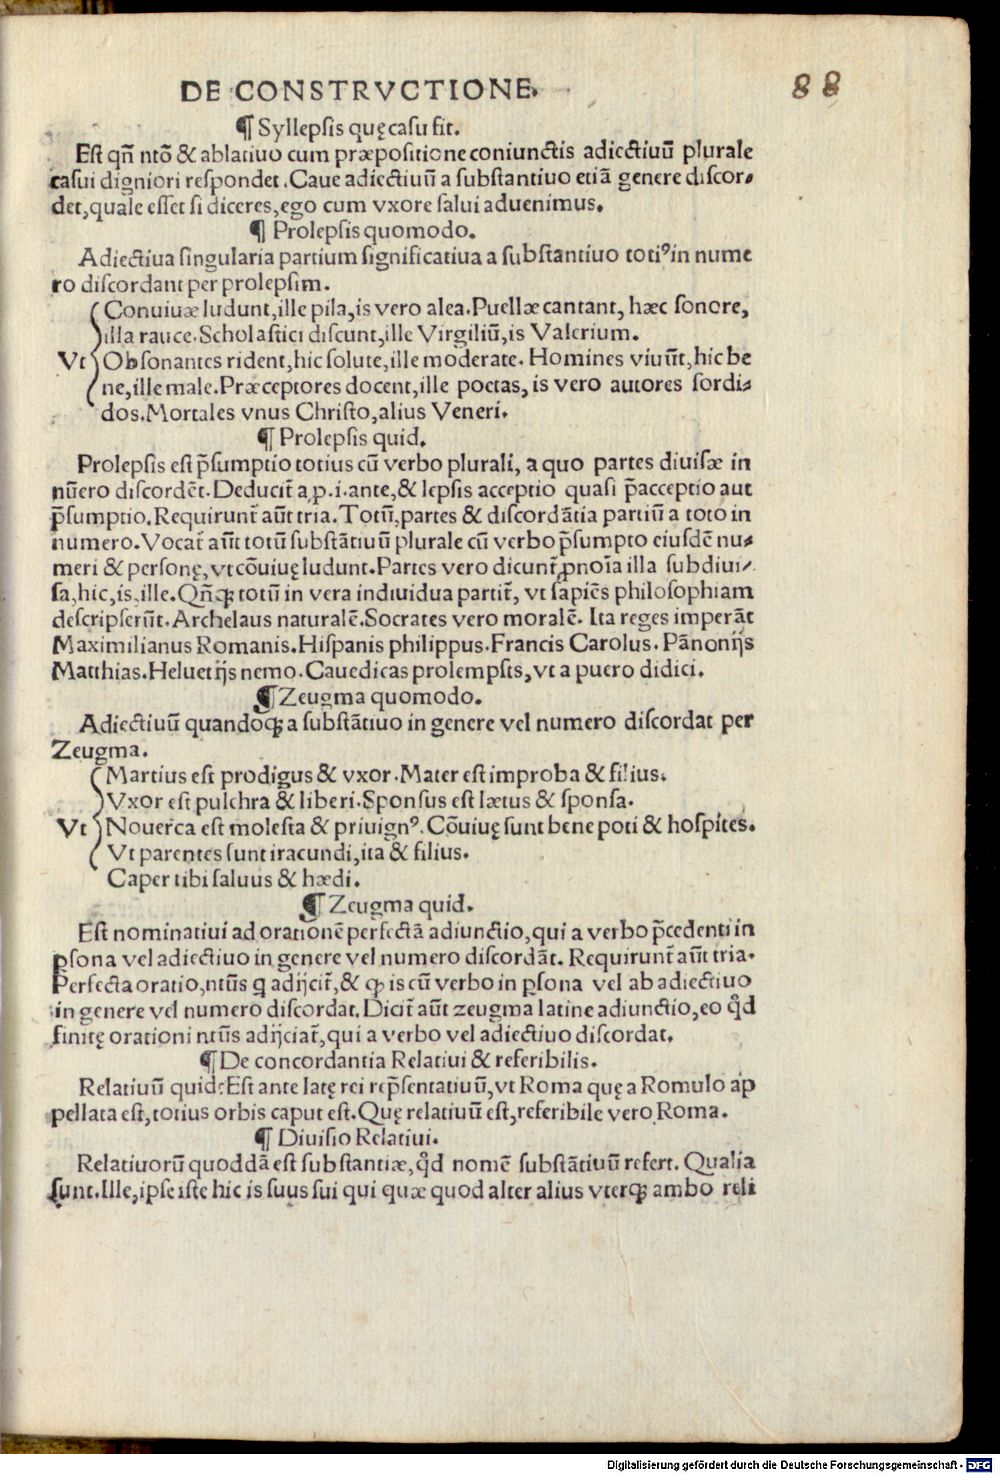 DE CONSTRVCTIONE.
88
¶ Syllepsis quęcasu fit.
Est qñ ntõ & ablatiuo cum præpositione coniunctis adiectiuũ plurale
casui digniori respondet. Caue adiectiuũ a substantiuo etiã genere discor-
det, quale esset si diceres, ego cum vxore salui aduenimus.
¶ Prolepsis quomodo.
Adiectiua singularia partium significatiua a substantiuo totiꝰ in nume
ro discordant per prolepsim.
Conuiuæ ludunt, ille pila, is vero alea. Puellæ cantant, hæc sonore,
illa rauce. Scholastici discunt, ille Virgiliũ, is Valerium.
Vt Obsonantes rident, hic solute, ille moderate. Homines viuũt, hic be
ne, ille male. Præceptores docent, ille poetas, is vero autores sordi-
dos. Mortales vnus Christo, alius Veneri.
¶ Prolepsis quid.
Prolepsis est p̃sumptio totius cũ verbo plurali, a quo partes diuisæ in
nũero discordẽt. Deducit̃ a p. i. ante, & lepsis acceptio quasi p̃acceptio aut
p̃sumptio. Requirunt̃ aũt tria. Totũ, partes & discordãtia partiũ a toto in
numero. Vocat̃ aũt totũ substãtiuũ plurale cũ verbo p̃sumpto eiusdẽ nu-
meri & personę, vt cõuiuę ludunt. Partes vero dicunt̃ ꝓnoĩa illa subdiui-
sa, hic, is, ille. Qñqꝫ totũ in vera indiuidua partit̃, vt sapiẽs philosophiam
descripserũt. Archelaus naturalẽ. Socrates vero moralẽ. Ita reges imperãt
Maximilianus Romanis. Hispanis philippus. Francis Carolus. Pãnonijs
Matthias. Heluetijs nemo. Cauedicas prolempsis, vt a puero didici.
¶ Zeugma quomodo.
Adiectiuũ quandoqꝫ a substãtiuo in genere vel numero discordat per
Zeugma.
Martius est prodigus & vxor. Mater est improba & filius.
Vxor est pulchra & liberi. Sponsus est lætus & sponsa.
Vt Nouerca est molesta & priuignꝰ. Cõuiuę sunt bene poti & hospites.
Vt parentes sunt iracundi, ita & filius.
Caper tibi saluus & hædi.
¶ Zeugma quid.
Est nominatiui ad orationẽ perfectã adiunctio, qui a verbo p̃cedenti in
ꝑsona vel adiectiuo in genere vel numero discordãt. Requirunt̃ aũt tria.
Perfecta oratio, ntũs q adijcit̃, & ꝙ is cũ verbo in ꝑsona vel ab adiectiuo
in genere vel numero discordat. Dicit̃ aũt zeugma latine adiunctio, eo q̃d
finitę orationi ntũs adijciat̃, qui a verbo vel adiectiuo discordat.
¶ De concordantia Relatiui & referibilis.
Relatiuũ quid: Est ante latę rei rep̃sentatiuũ, vt Roma quę a Romulo ap
pellata est, totius orbis caput est. Quę relatiuũ est, referibile vero Roma.
¶ Diuisio Relatiui.
Relatiuorũ quoddã est substantiæ, q̃d nomẽ substãtiuũ refert. Qualia
sunt. Ille, ipse iste hic is suus sui qui quæ quod alter alius vterqꝫ ambo reli
Digitalisierung gefördert durch die Deutsche Forschungsgemeinschaft - DFG